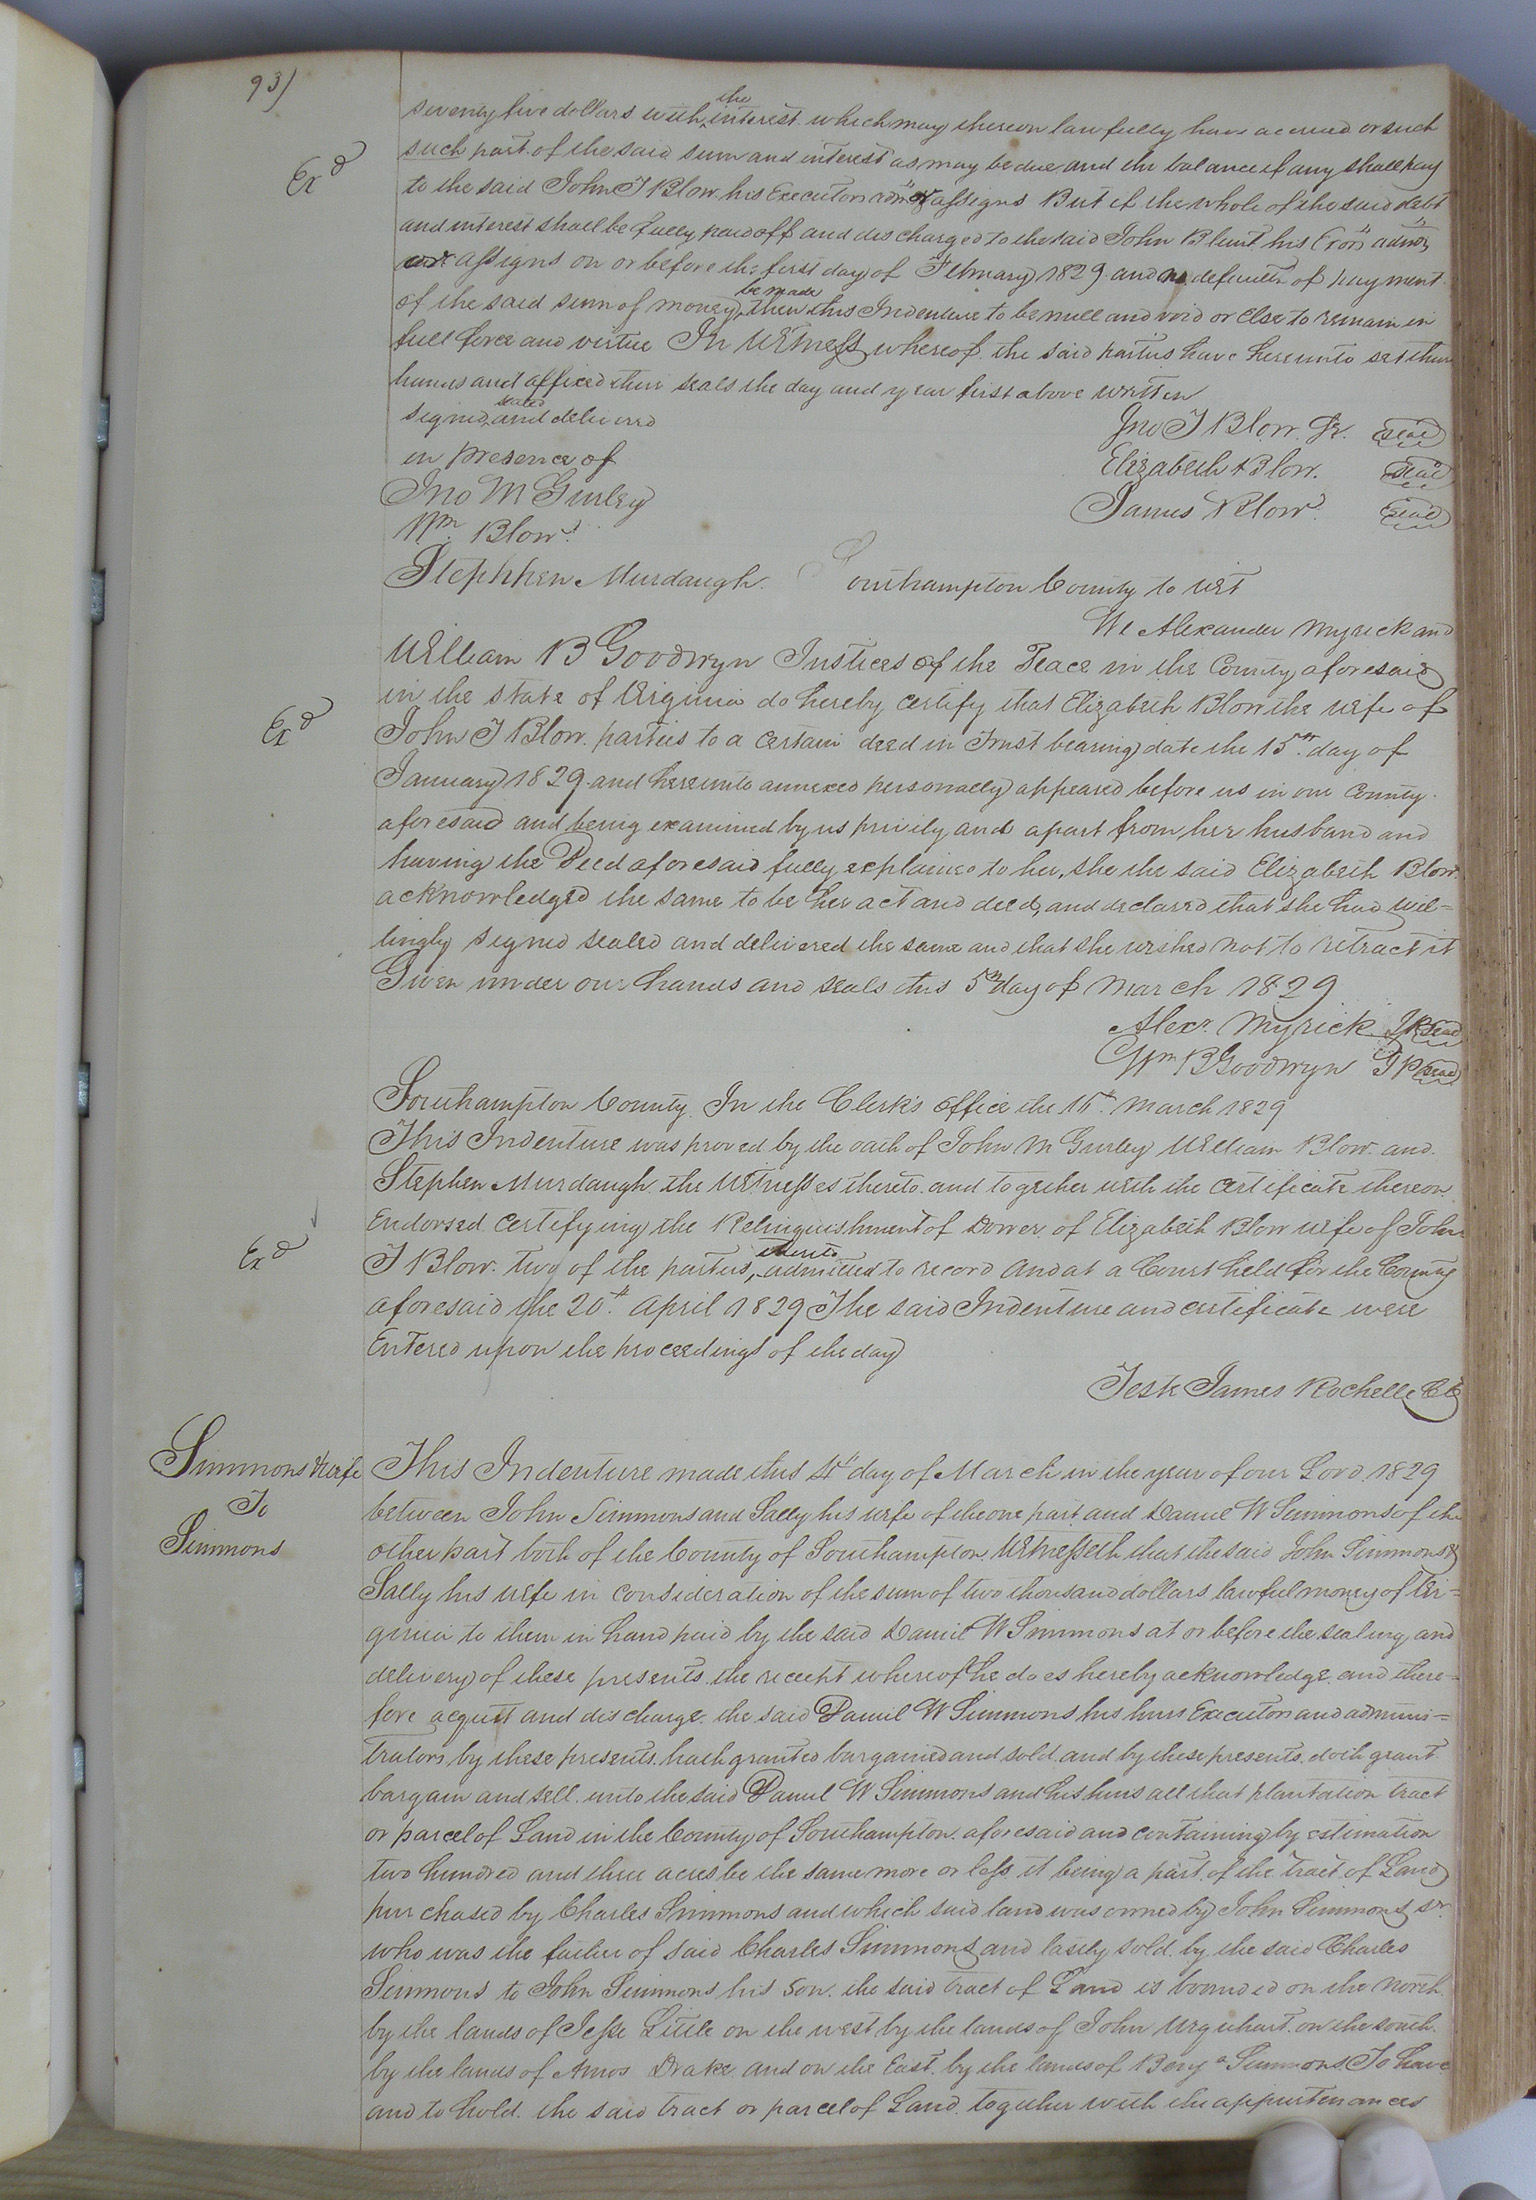 93)
seventy five dollars with the interest which may thereon lawfully have accrued or such
Exd
such part of the said sum and interest as may be due and the balance if any shall pay
to the said John T Blow his Executors admrs or assigns But if the whole of the said debt
and interest shall be fully paid off and discharged to the said John Blunt his Exors admrs
or assigns on or before the first day of February 1829 and no default of payment
of the said sum of money be made then this Indenture to be null and void or else to remain in
full force and virtue In Witness whereof the said parties have hereunto set their
hands and affixed their seals the day and year first above written
signed sealed and delivered
in presence of
Jno M Gurley
Wm Blow
Stephhen Murdaugh
Jno T Blow Jr. seal
Elizabeth Blow. seal
James N Blow. seal
Southampton County to wit
We Alexander Myrick and
William B Goodwyn Justices of the Peace in the County aforesaid
in the state of Virginia do hereby certify that Elizabeth Blow the wife of
Exd
John T Blow parties to a certain deed in Trust bearing date the 15th day of
January 1829 and hereunto annexed personally appeared before us in our County
aforesaid and being examined by us privily and apart from her husband and
having the Deed aforesaid fully explained to her, she the said Elizabeth Blow
acknowledged the same to be her act and deed, and declared that she had wil=
lingly signed sealed and delivered the same and that she wished not to retract it
Given under our hands and seals this 5th day of March 1829
Alexr. Myrick JP seal
Wm B Goodwyn JP seal
Southampton County In the Clerk's office the March 1829
This Indenture was proved by the oath of John M Gurley William Blow and
Stephen Murdaugh the Witnesses thereto and together with the certificate thereon
Endorsed certifying the Relinquishment of Dower of Elizabeth Blow wife of John
Exd
T Blow two of the parties thereto admitted to record And at a Court held for the County
aforesaid the 20th April 1829 The said Indenture and certificate were
Entered upon the proceedings of the day
Teste James Rochelle CC
Simmons & wife
To
Simmons
This Indenture made this 4th day of March in the year of our Lord 1829
between John Simmons and Sally his wife of the one part and Daniel W Simmons of the
other part both of the County of Southampton Witnesseth that the said John Simmons &
Sally his wife in consideration of the sum of two thousand dollars lawful money of Vir=
ginia to them in hand paid by the said Daniel W Simmons at or before the sealing and
delivery of these presents the receipt whereof he does hereby acknowledge and there=
fore acquit and discharge the said Daniel W Simmons his heirs Executors and adminis=
trators by these presents hath granted bargained and sold and by these presents doth grant
bargain and sell unto the said Daniel W Simmons and his heirs all that plantation tract
or parcel of Land in the County of Southampton aforesaid and containing by estimation
two hundred and three acres be the same more or less it being a part of the tract of Land
purchased by Charles Simmons and which said land was owned by John Simmons sr.
who was the father of said Charles Simmons and lastly sold by the said Charles
Simmons to John Simmons his son. the said tract of Land is bounded on the North
by the lands of Jesse Little on the west by the lands of John Urquhart on the south
by the lands of Amos Drake and on the East by the lands of Benja Simmons To have
and to hold the said tract or parcel of Land together with the appurtenances